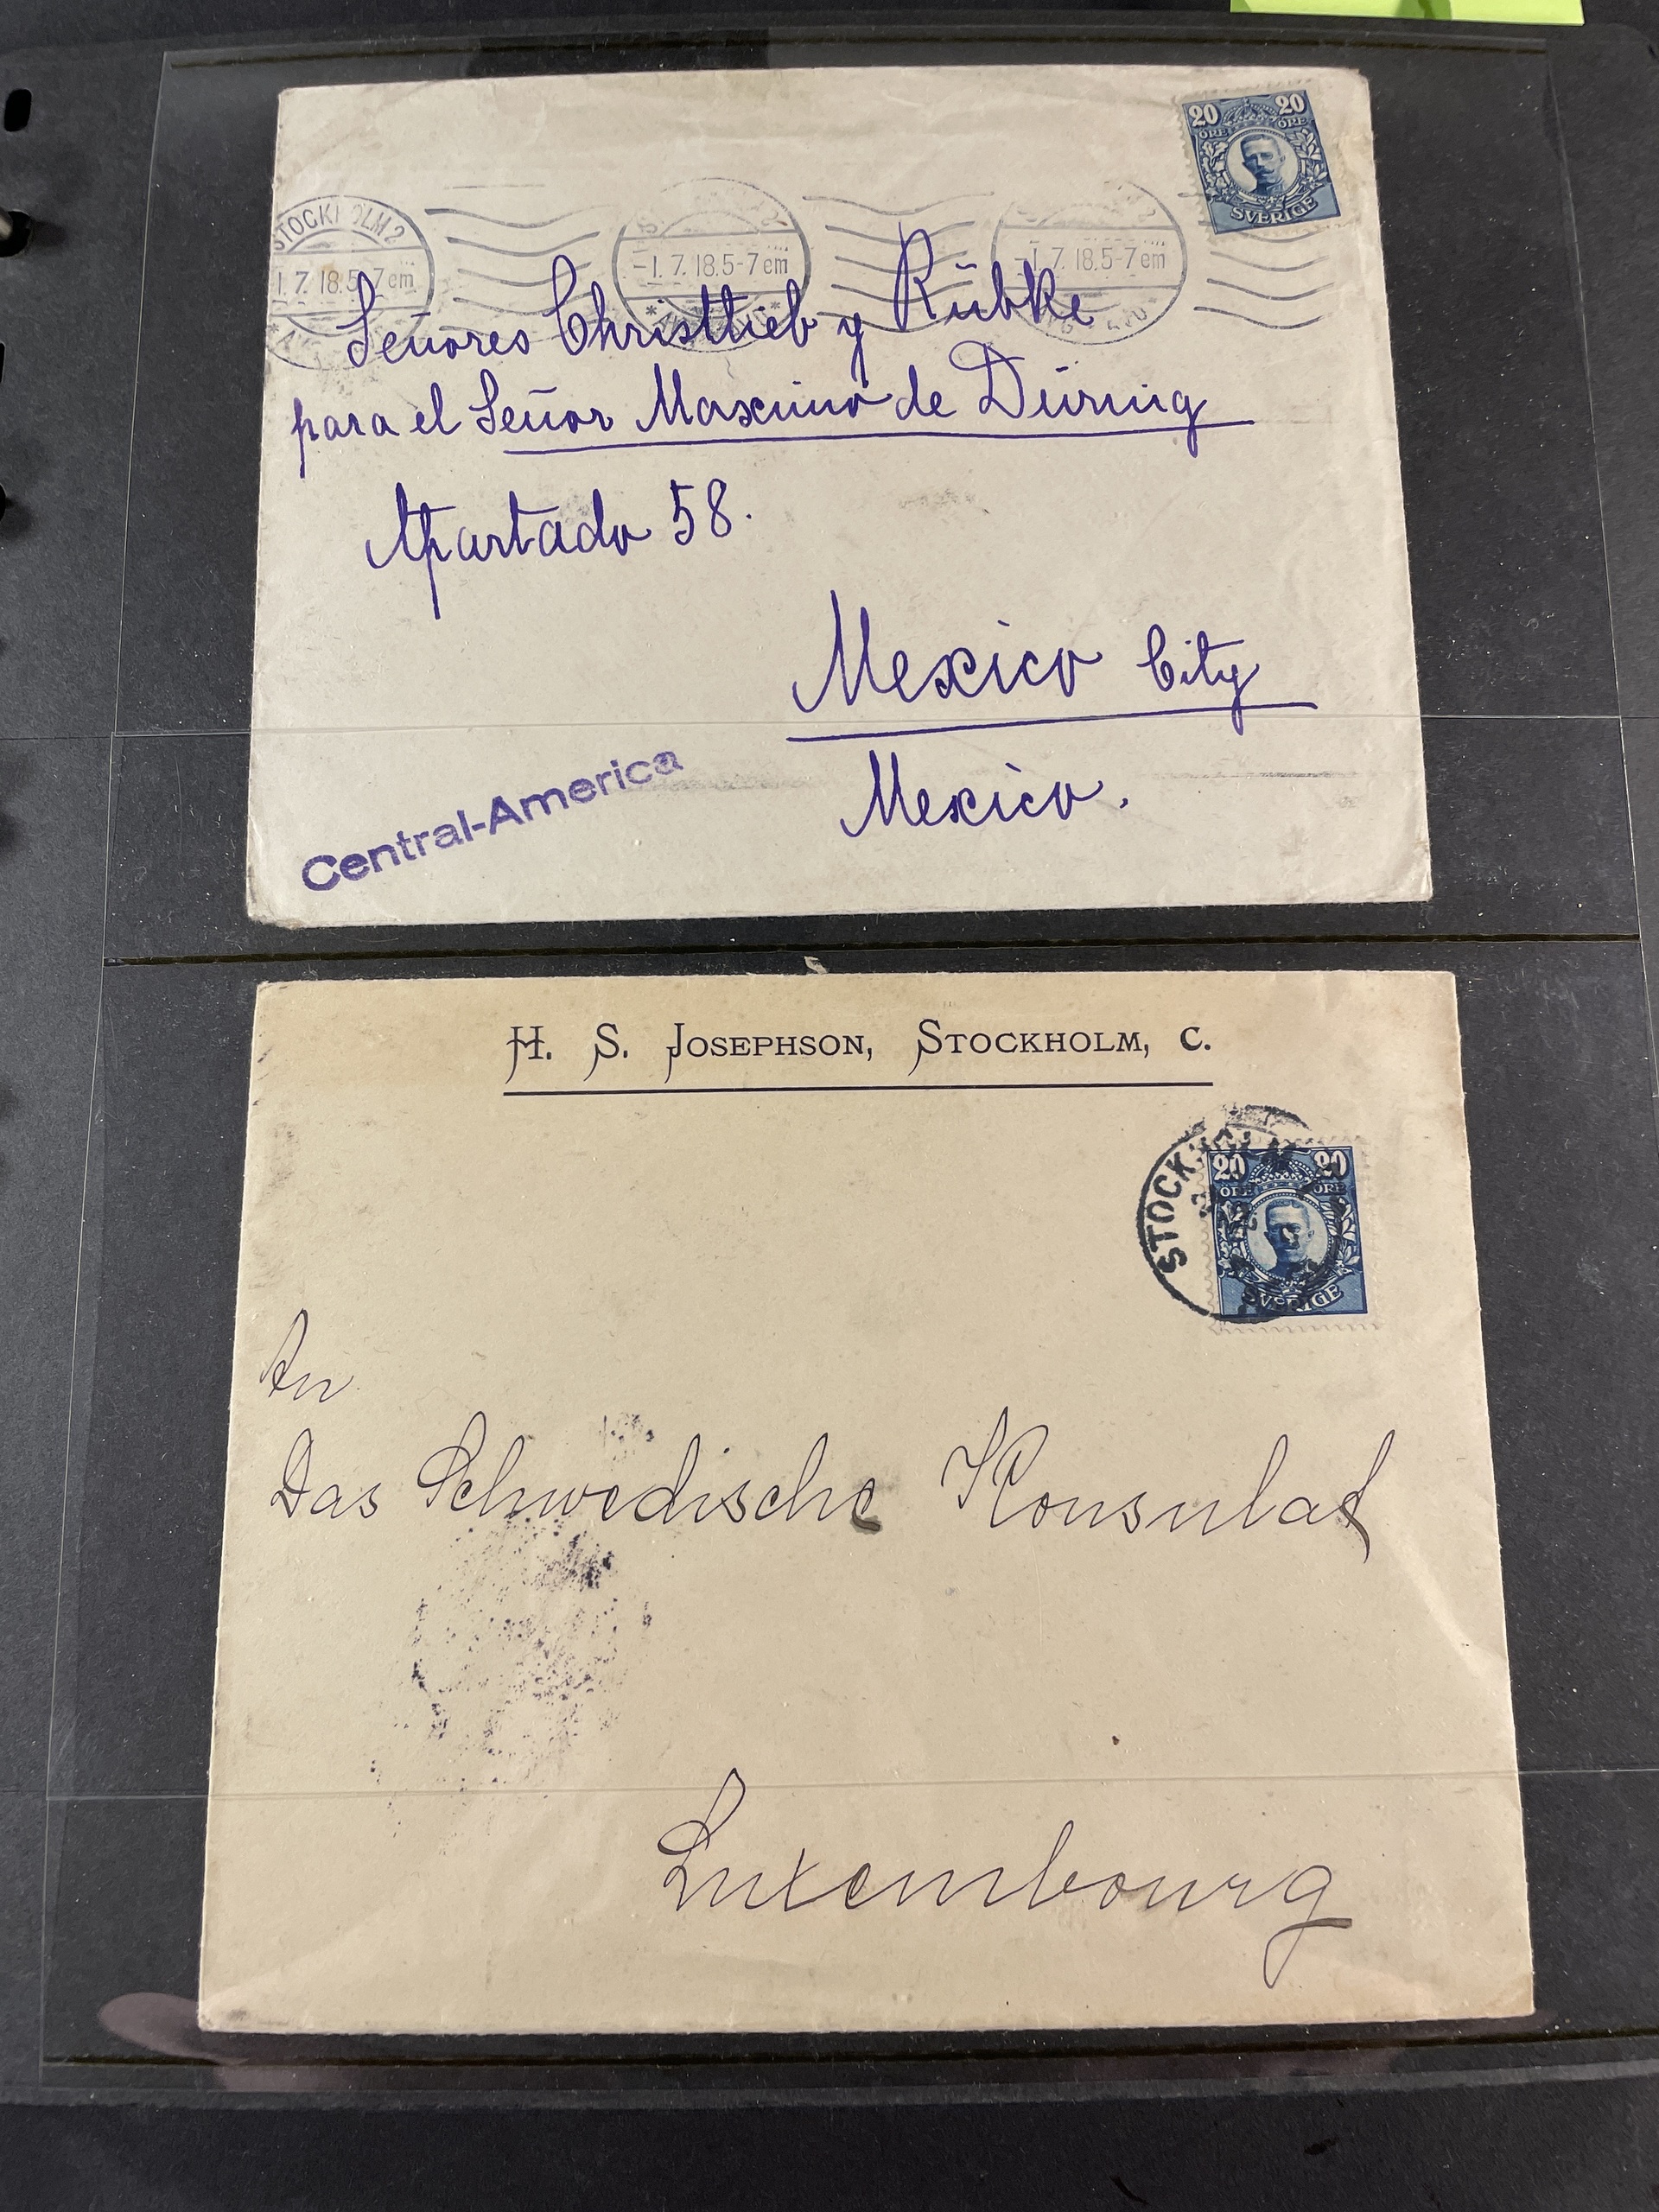 20 20
ÖRE ÖRE
SVERIGE
STOCKHOLM 2
1.7.18.5-7em
-1.7.18.5-7em
-1.7.18.5-7em
Señores Christlieb y Rübke
para el Señor Maximo de Düring
Apartado 58.
Mexico City
Mexico.
Central-America
H. S. JOSEPHSON, STOCKHOLM, C.
STOCKHOLM
20 20
ÖRE ÖRE
SVERIGE
An
Das Schwedische Konsulat
Luxembourg